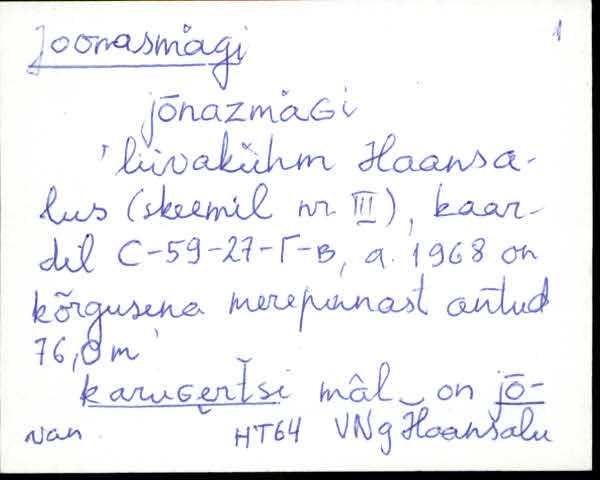 Joonasmägi 1
jōnazmäGi
'liivakühm Haansa-
lus (skeemil nr. III), kaar-
dil C-59-27-Г-в, a. 1968 on
kõrgusena merepinnast antud
76,0 m'
karuGertši mäl‿ on jō-
Nan HT64 VNg Haansalu